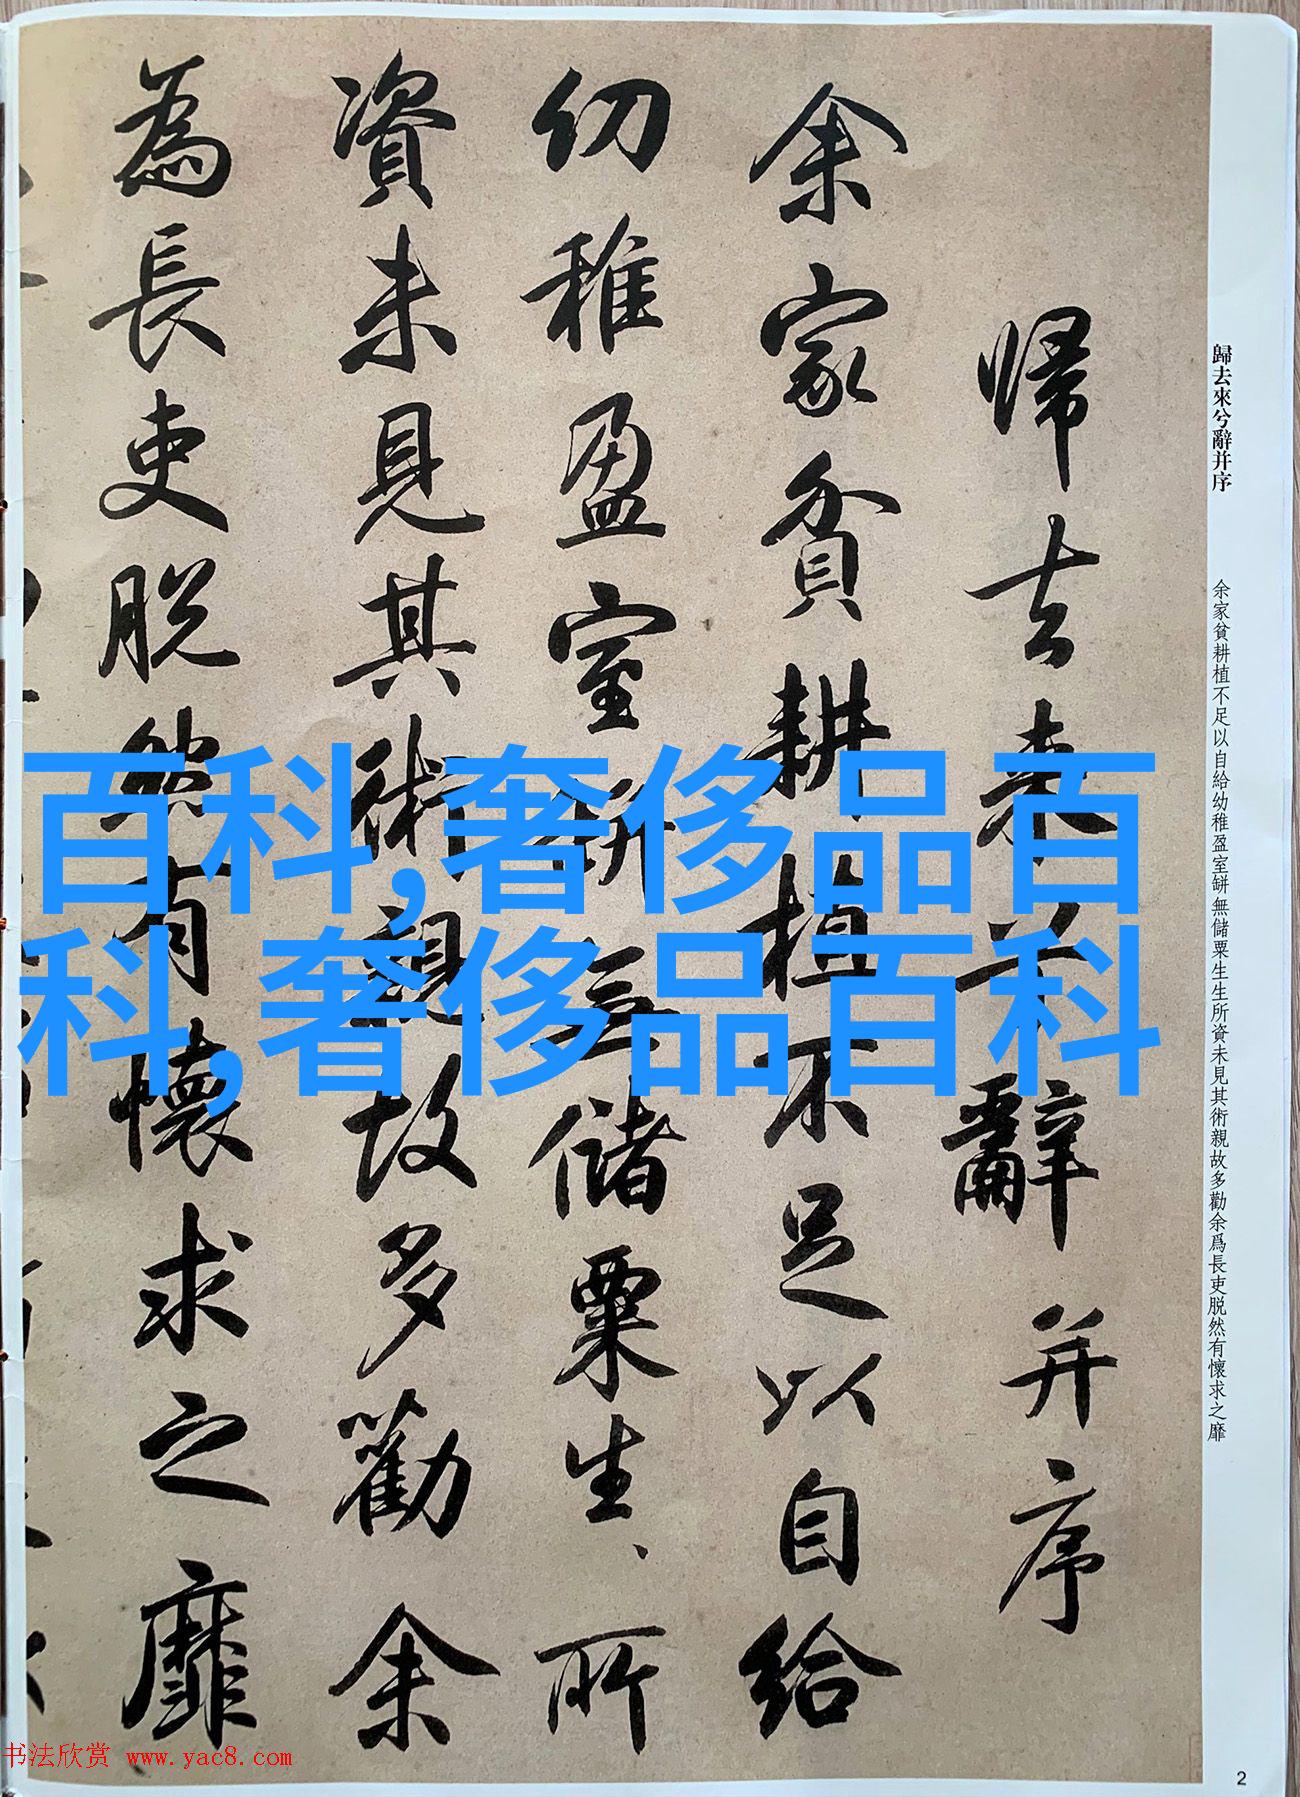 歸去來兮辭并序
余家貧耕植不足以自給幼稚盈室缾無儲粟生生所資未見其術親故多勸余爲長吏脱然有懷求之靡
帰去来兮辭并序
余家貧耕植不足以自給
幼稚盈室缾無儲粟生、所
資未見其術親故多勸余
為長吏脱然有懷求之靡
百科,奢侈品百
科,奢侈品百科
书法欣赏 www.yac8.com
2